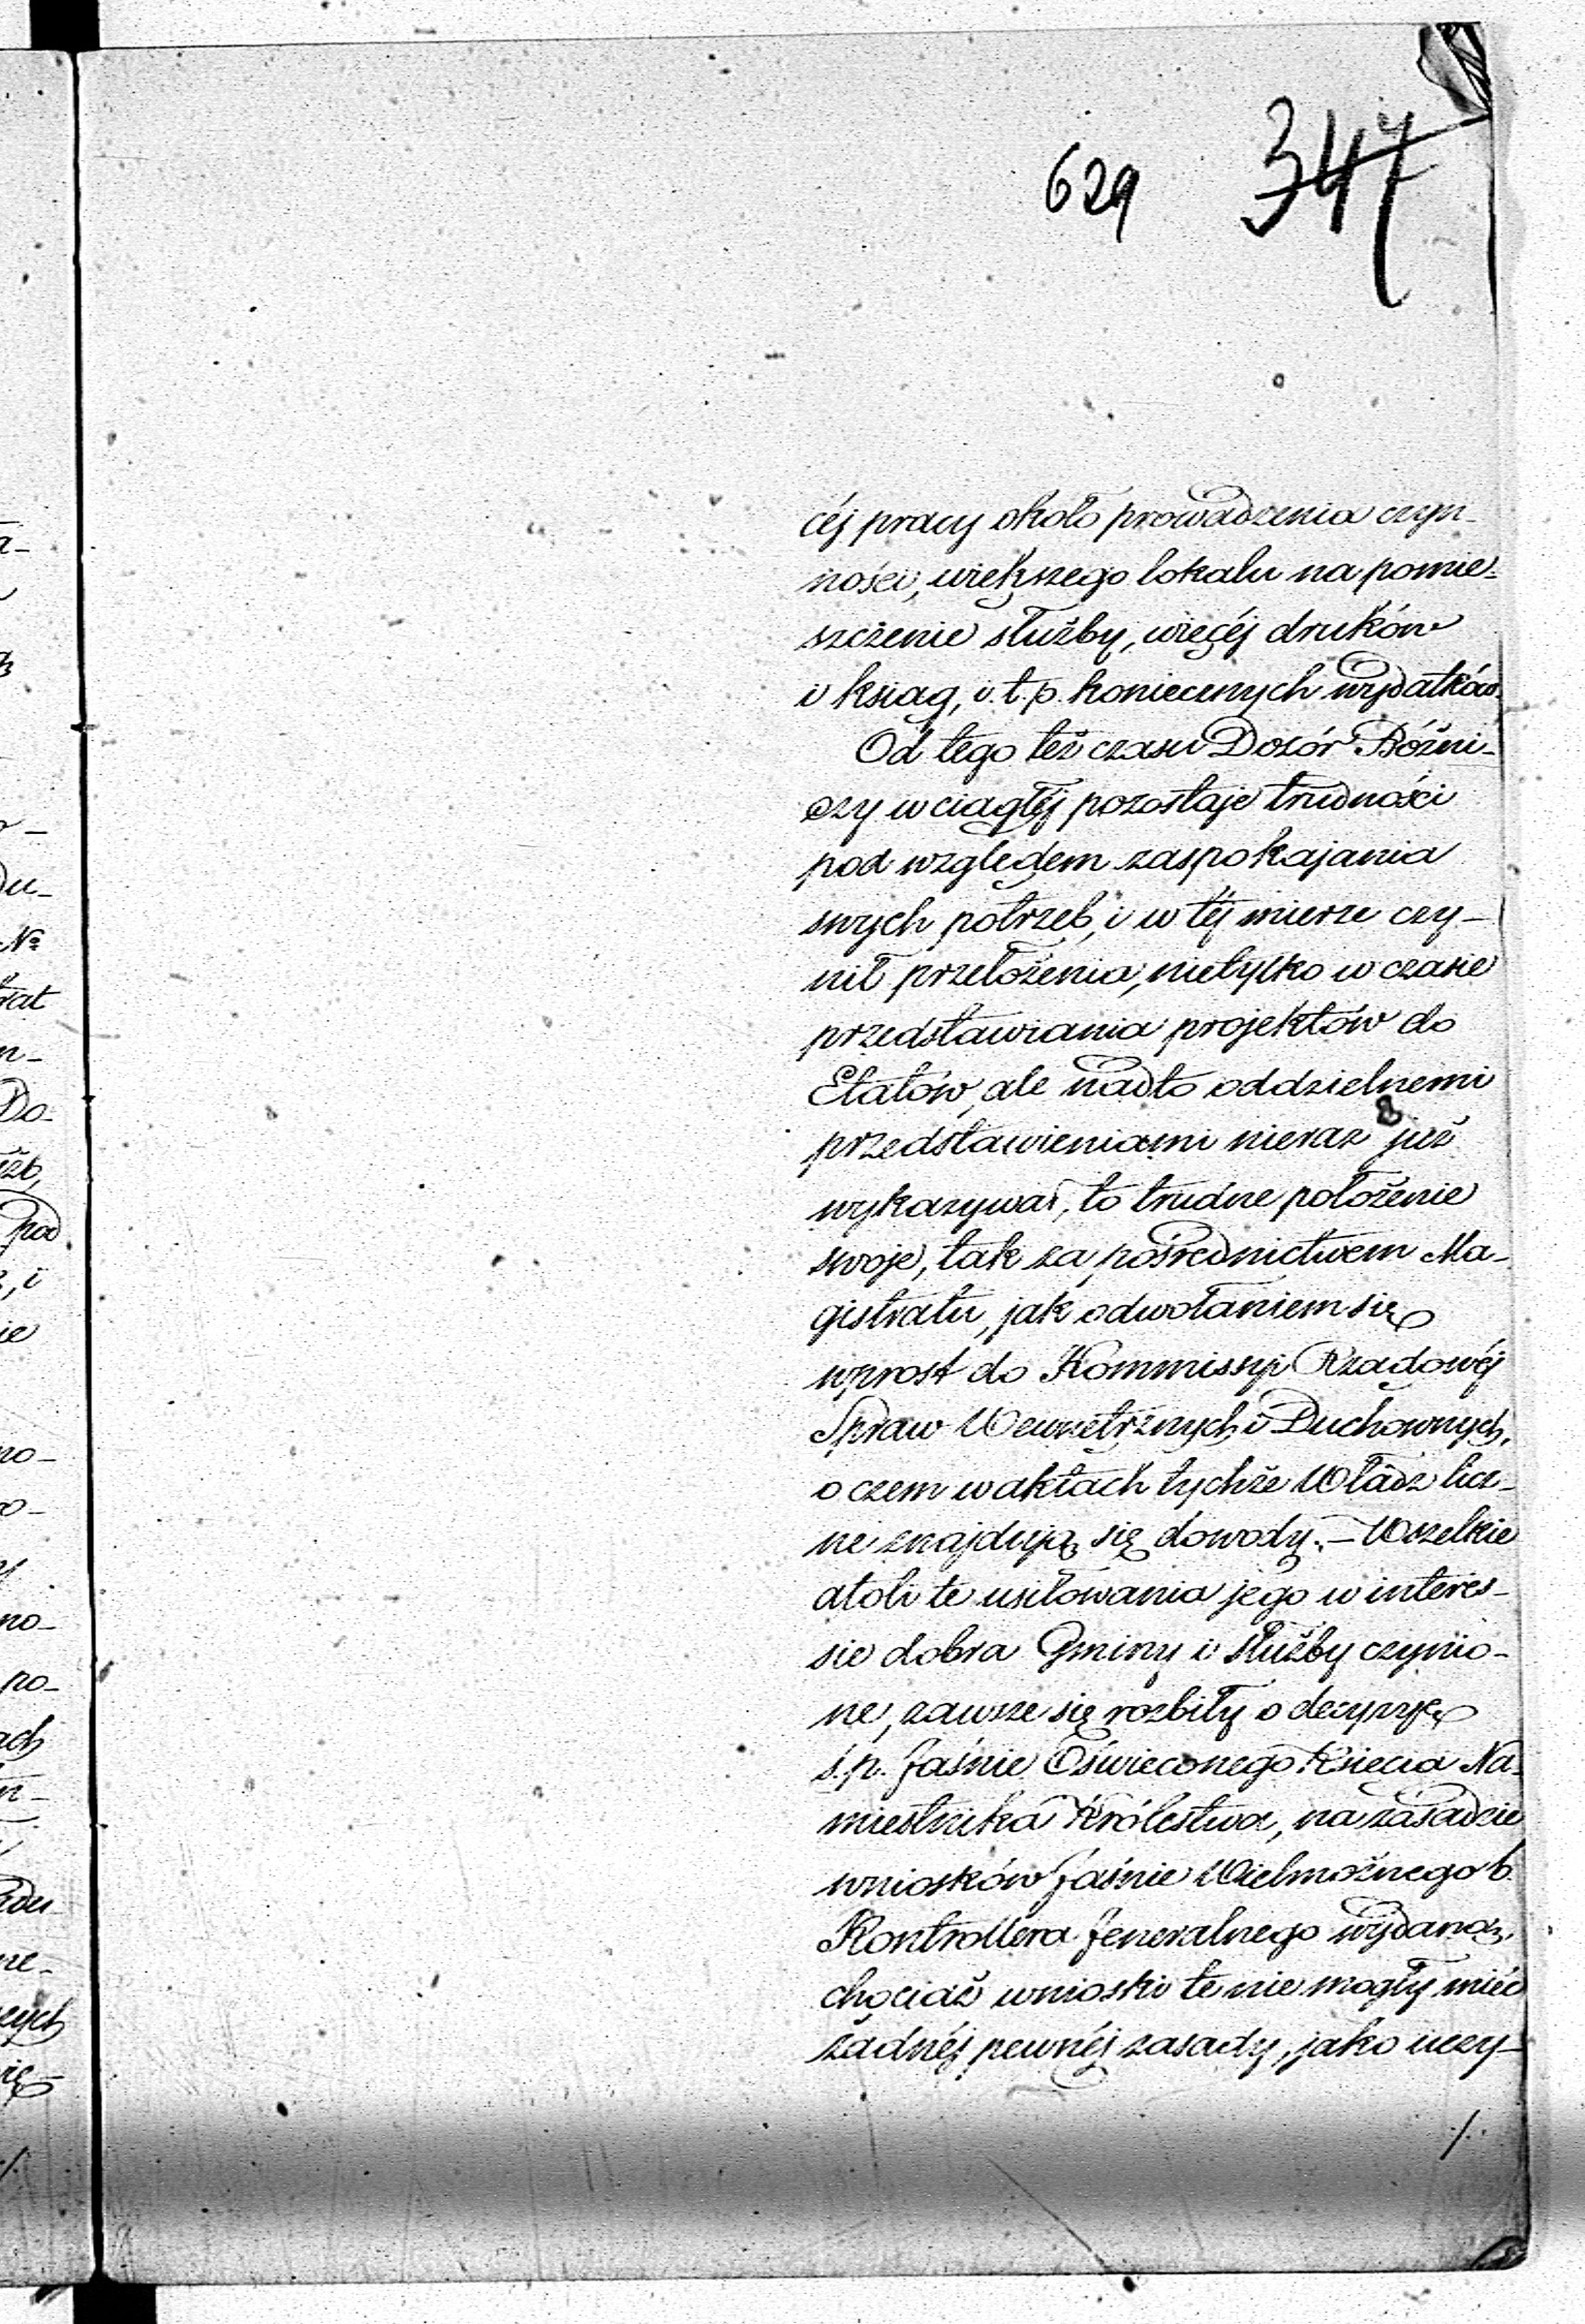 629 347
céj pracy około prowadzenia czyn-
ności, większego lokalu na pomie-
szczenie służby, więcéj druków
i ksiąg, i. t. p. koniecznych wydatków.
Od tego też czasu Dozór Bóżni-
czy w ciągłéj pozostaje trudności
pod względem zaspokajania
swych potrzeb, i w téj mierze czy-
nił przełożenia, nietylko w czasie
przedstawiania projektów do
Etatów, ale nadto oddzielnemi
przedstawieniami nieraz już
wykazywał, to trudne położenie
swoje, tak za pośrednictwem Ma-
gistratu, jak odwołaniem się
wprost do Kommissyi Rządowéj
Spraw Wewnętrznych i Duchownych,
o czem w aktach tychże Władz licz-
ne znajdują się dowody. – Wszelkie
atoli te usiłowania jego w interes-
sie dobra Gminy i służby czynio-
ne, zawsze się rozbiły o decyzyę
ś. p. Jaśnie Oświeconego Księcia Na-
miestnika Królestwa, na zasadzie
wniosków Jaśnie Wielmożnego b.
Kontrollera Jeneralnego wydaną,
chociaż wnioski te nie mogły mieć
żadnéj pewnéj zasady, jako uczy-
./.
a-
o-
du-
№
rat
n-
Do-
żb,
pod
, i
ie
no-
o-
no-
po-
ach
n-
adu
ne-
cych
się
./.